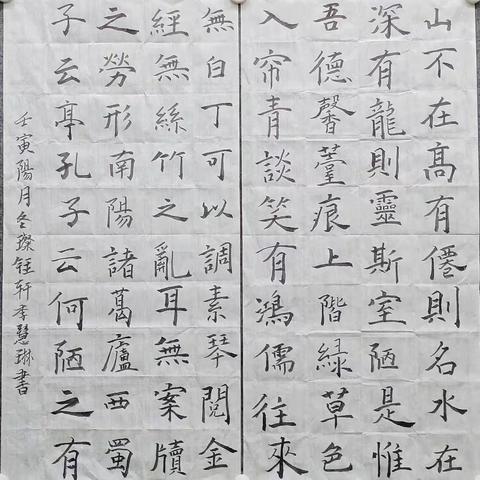 山不在高有僊則名水在
深有龍則靈斯室陋是惟
吾德馨薹痕上階緑草色
入帘青談笑有鴻儒往來
無白丁可以調素琴閲金
經無絲竹之亂耳無案牘
之勞形南陽諸葛廬西蜀
子云亭孔子云何陋之有
壬寅陽月冬璨钰轩李慧琳書